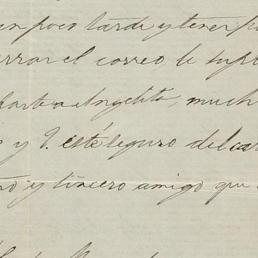 un poco tarde y tener p
rrar el correo le supl
darte a Angelita, much
y V. esté seguro del car
ño y sincero amigo que